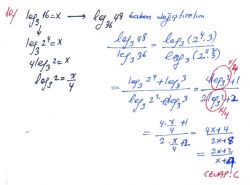 10) log₃16=x → log₃₆48 taban değiştirelim
log₃2⁴=x
4log₃2=x
log₃2=x/4
log₃48/log₃36 = log₃(2⁴.3)/log₃(2².3²)
= log₃2⁴+log₃3/log₃2²+log₃3² = 4log₃2+1/2log₃2+2
x/4
x/4
= 4.x/4+1/2.x/4+2 = 4x+4/2x+8
= 2x+2/x+4
CEVAP: C